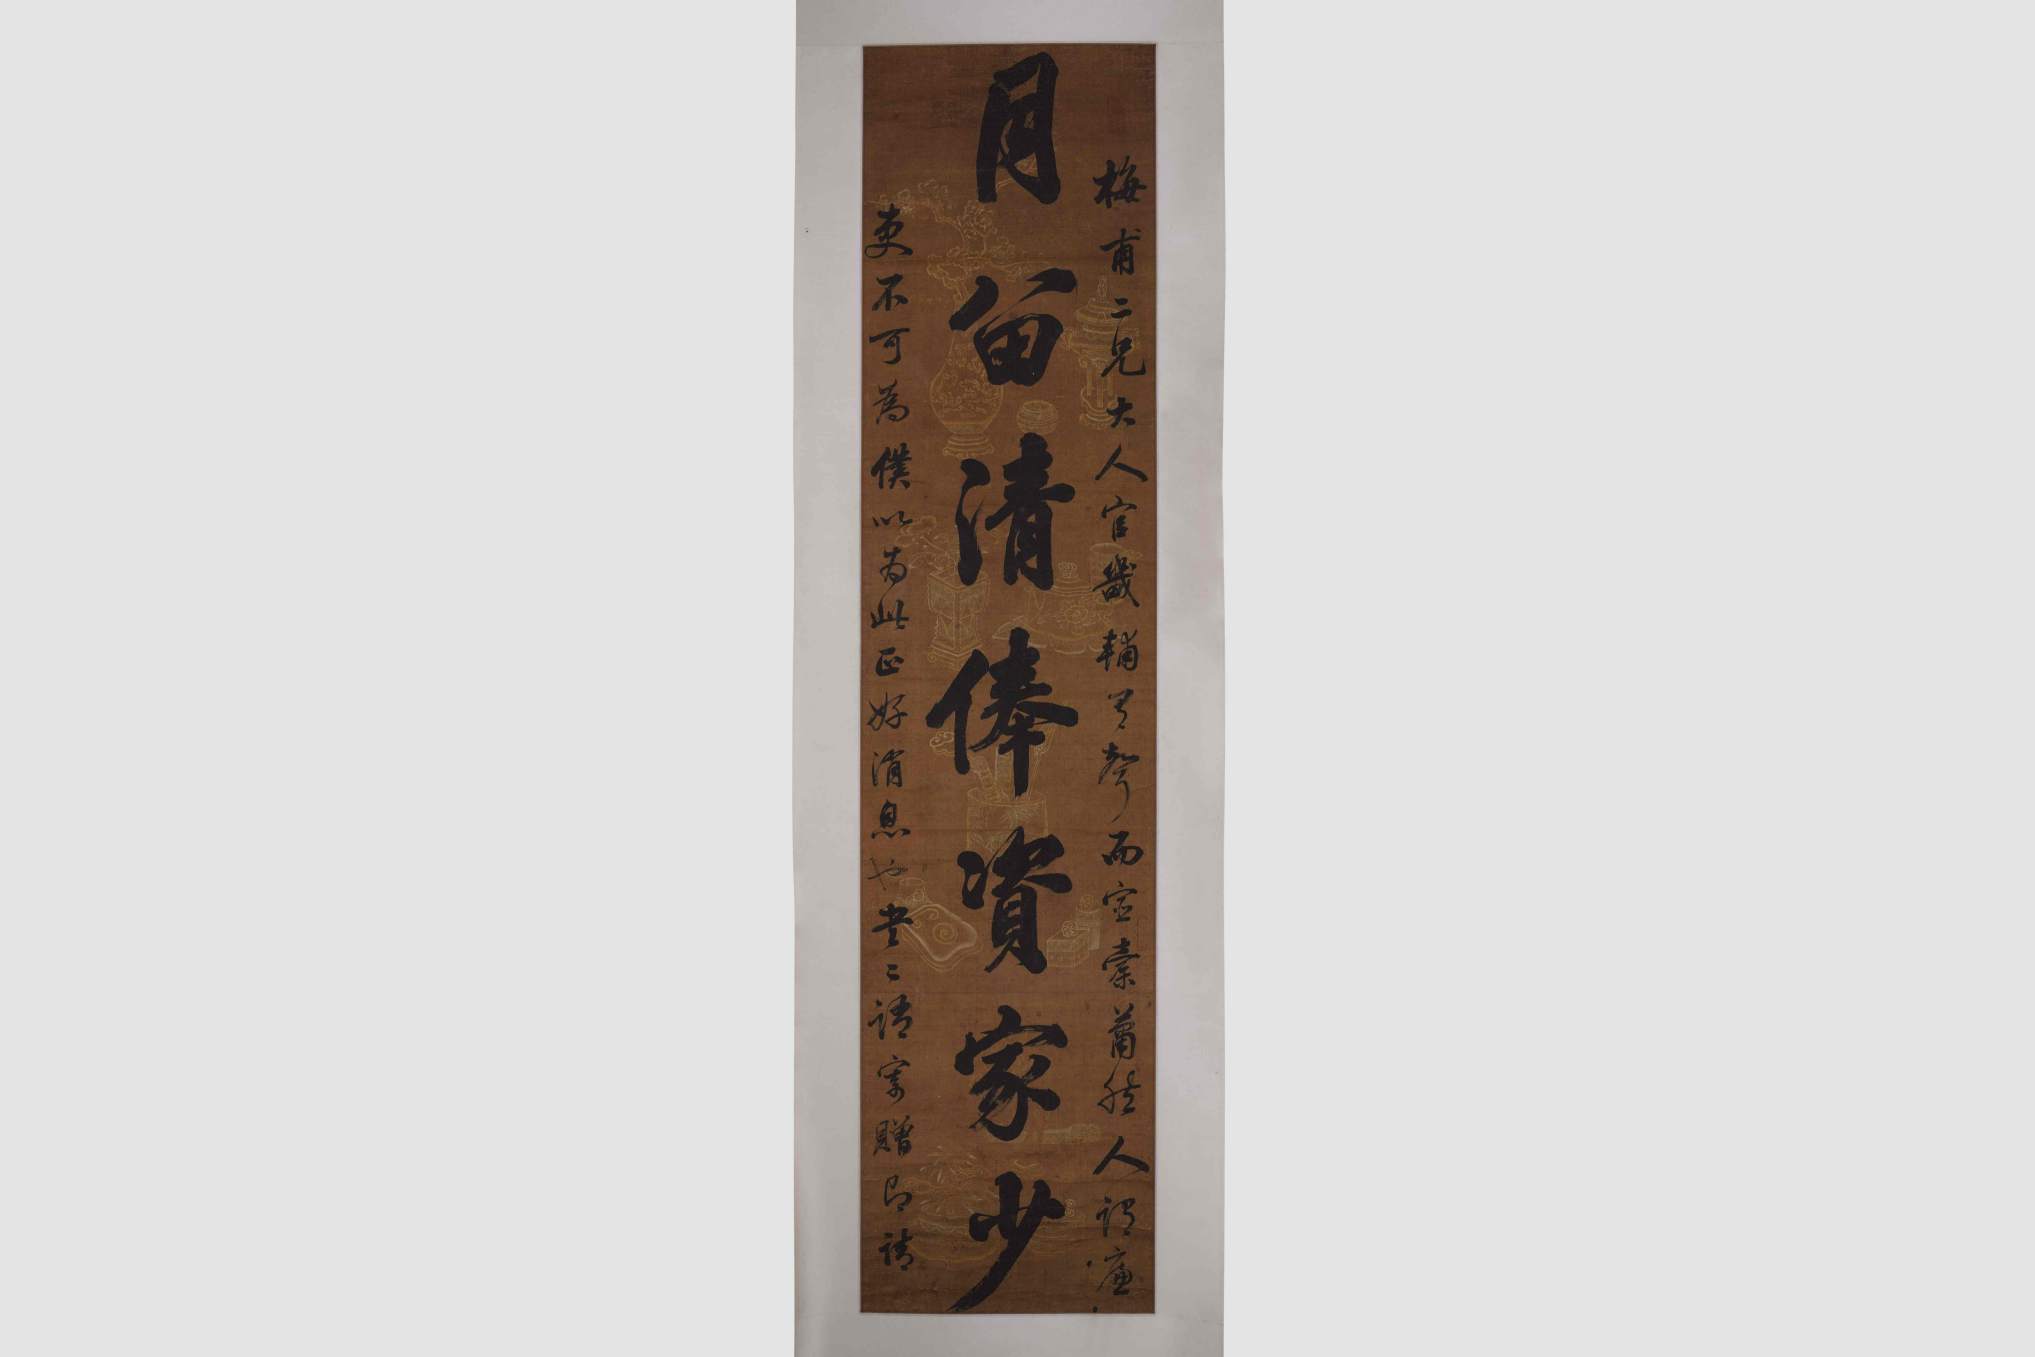 梅甫二兄大人官畿輔有聲而宦橐蕭然人謂廉
月留清俸資家少
吏不可為僕以為此正好消息也書二語寄贈即請